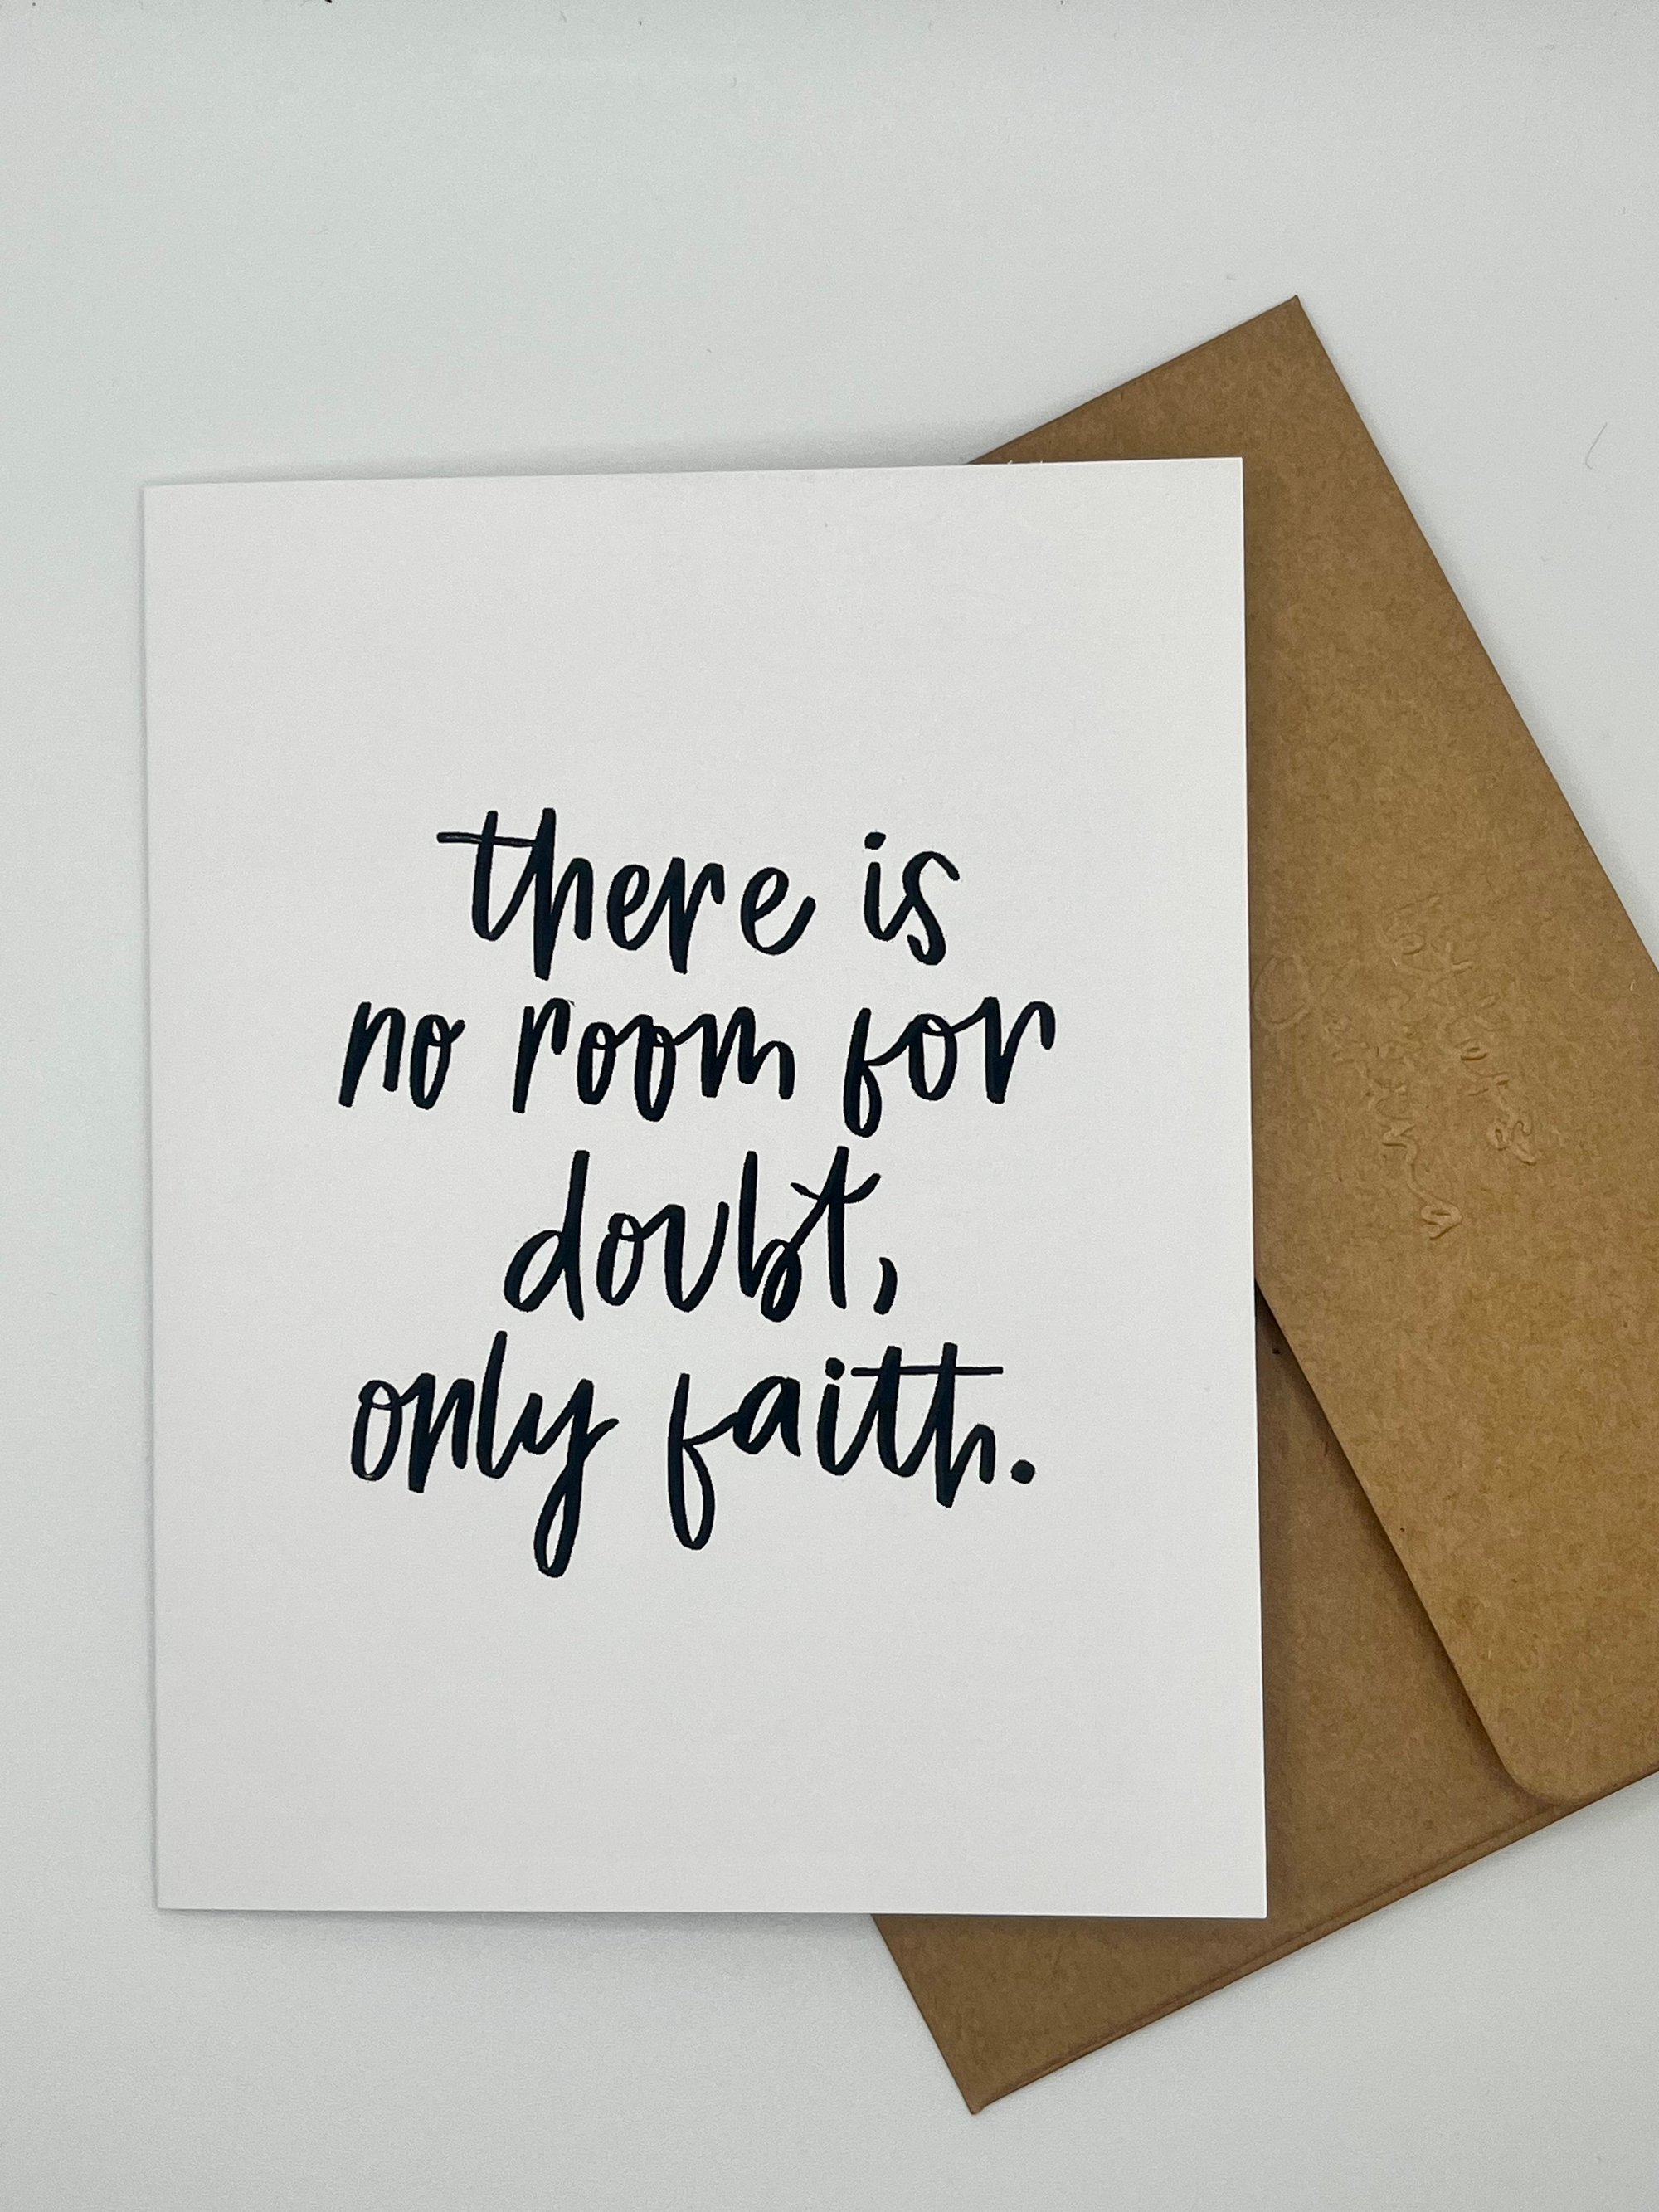 there is
no room for
doubt,
only faith.